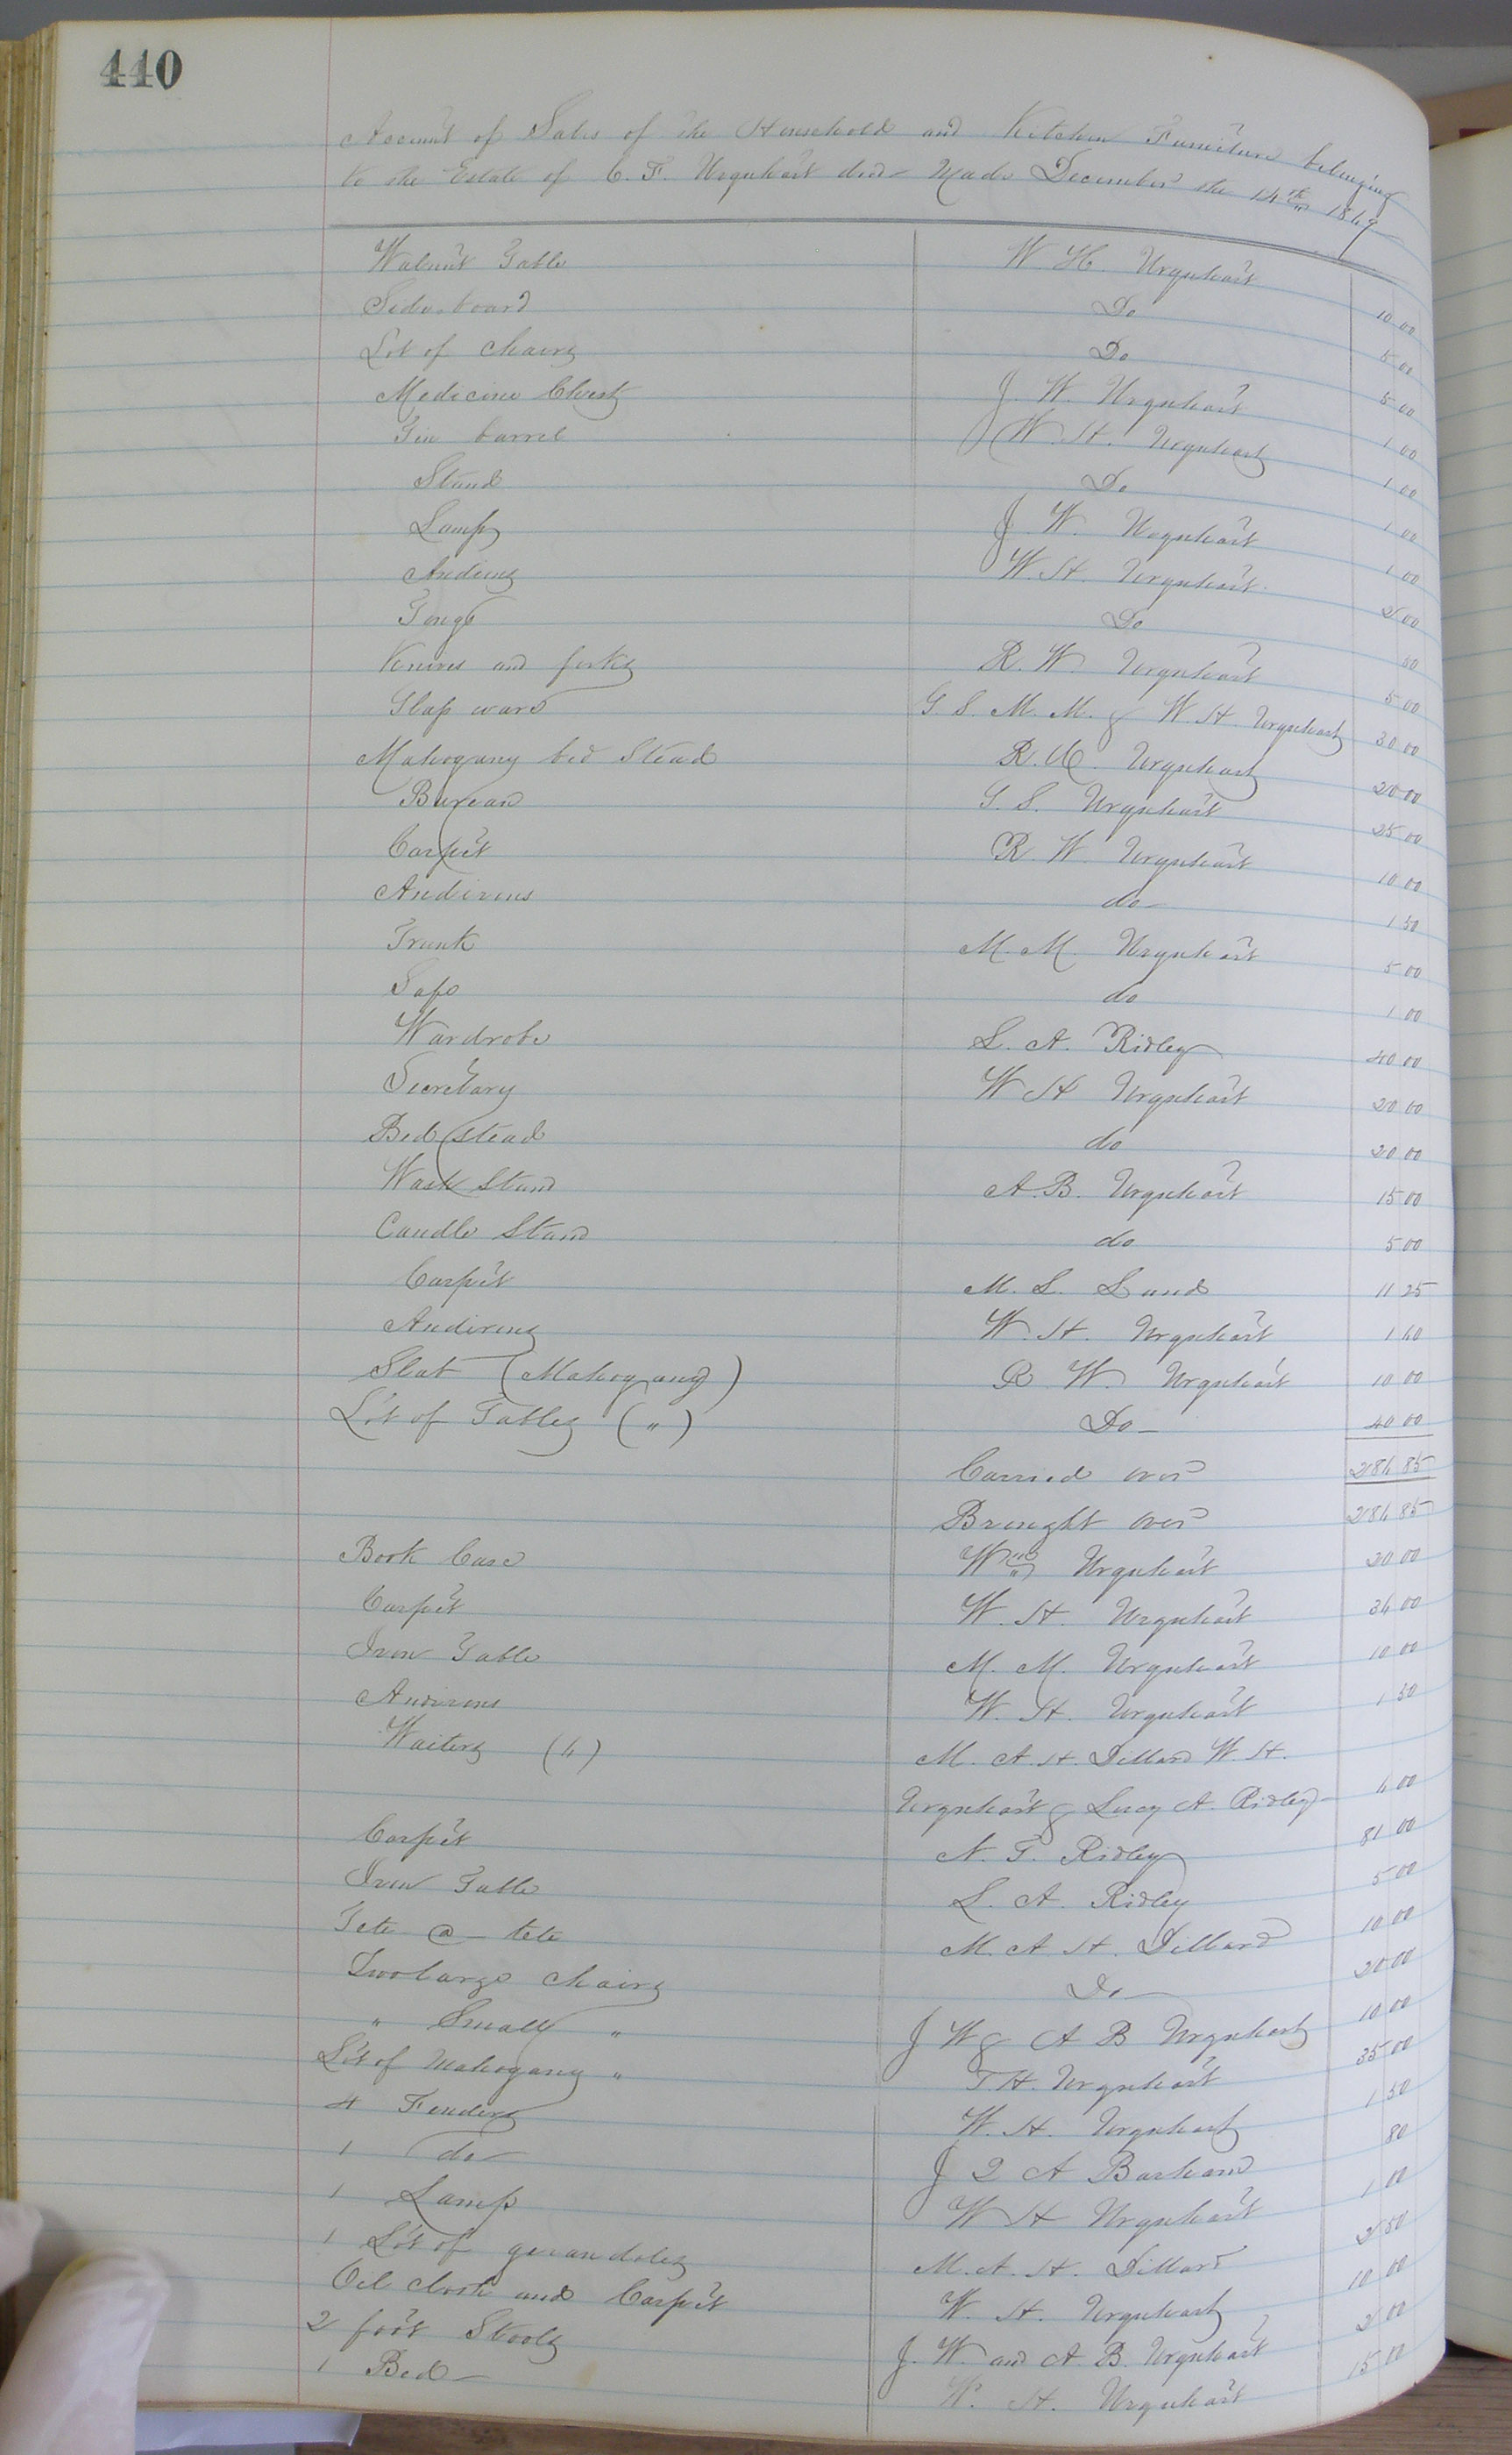 440
Account of Sales of the Household and Kitchen Furniture belonging
to the Estate of C. F. Urquhart decd Made December the 14th 1869
Walnut Table W. H. Urquhart 10 00
Side board Do 5 00
Lot of chairs Do 5 00
Medicine Chest J. W. Urquhart 1 00
Gin barrel W. H. Urquhart 1 00
Stand Do 1 00
Lamp J. W. Urquhart 1 00
Andirons W. H. Urquhart 2 00
Tongs Do 50
Knives and forks R. W. Urquhart 5 00
Glass ware G. S. M. M. & W. H. Urquhart 30 00
Mahogany bed Stead R. W. Urquhart 20 00
Bureau G. S. Urquhart 25 00
Carpet R. W. Urquhart 10 00
Andirons do 1 50
Trunk M. M. Urquhart 5 00
Safe do 1 00
Wardrobe L. A. Ridley 40 00
Secretary W H Urquhart 20 00
Bed Stead do 20 00
Wash Stand A. B. Urquhart 15 00
Candle Stand do 5 00
Carpet M. L. 11 25
Andirons W. H. Urquhart 1 60
Slat (Mahogany) R. W. Urquhart 10 00
Lot of Tables (") Do 40 00
Carried over 286 85
Brought over 286 85
Book Case Urquhart 20 00
Carpet W. H. Urquhart 36 00
Iron Table M. M. Urquhart 10 00
Andirons W. H. Urquhart 1 50
Waiters (6) M. A. H. Dillard W. H.
Urquhart & Lucy A. Ridley 6 00
Carpet N. T. Ridley 81 00
Iron Table L. A. Ridley 5 00
Tete a tete M. A. H. Dillard 10 00
Two large chairs Do 20 00
" Small " J W & A B Urquhart 10 00
Lot of Mahogany " T. H. Urquhart 35 00
4 Fenders W. H. Urquhart 1 50
1 do J 2 A Barham 80
1 Lamp W H Urquhart 1 00
1 Lot of gerandoles M. A. H. Dillard 2 50
Oil cloth and Carpet W. H. Urquhart 10 00
2 foot Stools J. W. and A. B. Urquhart 2 00
1 Bed W. H. Urquhart 15 00